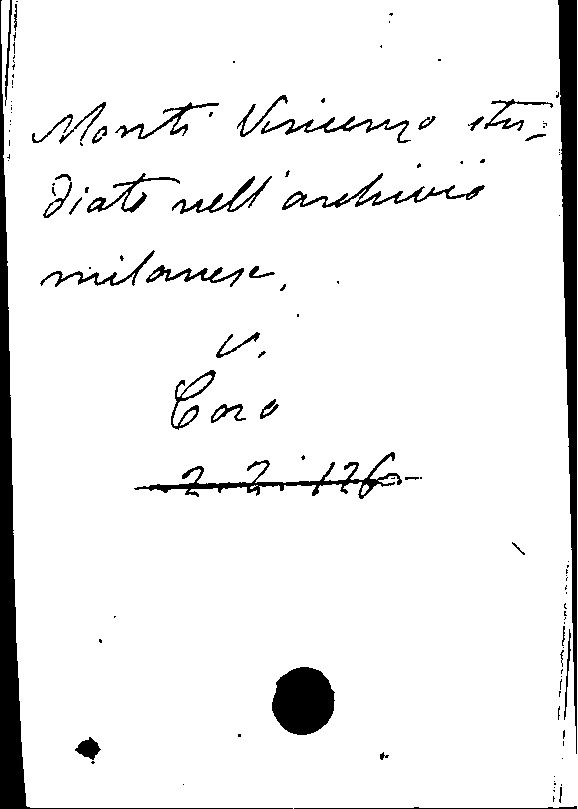 Monti Vincenzo stu-
diato nell'archivio
milanese.
v.
Coro
2. 2. 126